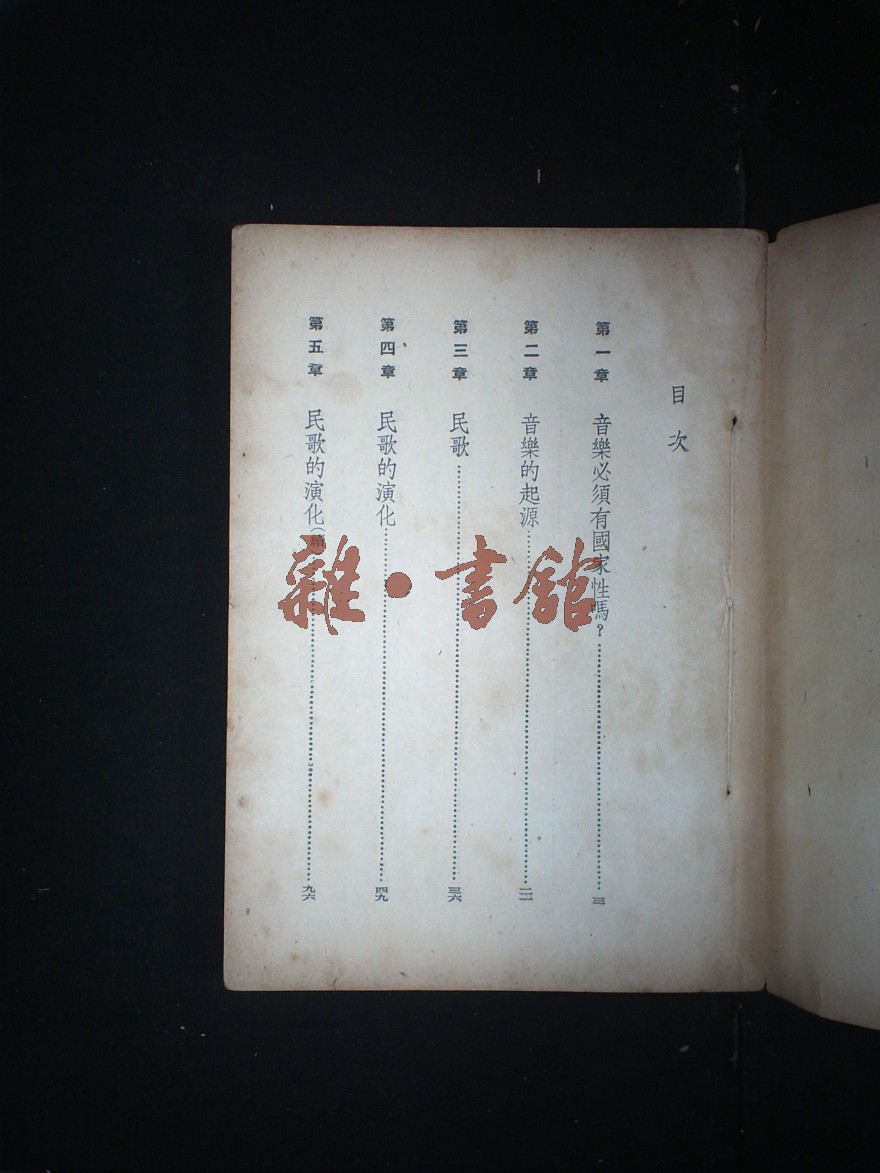 目次
第一章 音樂必須有國家性嗎？……三
第二章 音樂的起源……二二
第三章 民歌……三六
第四章 民歌的演化……四九
第五章 民歌的演化（續）……九六
雜·書館